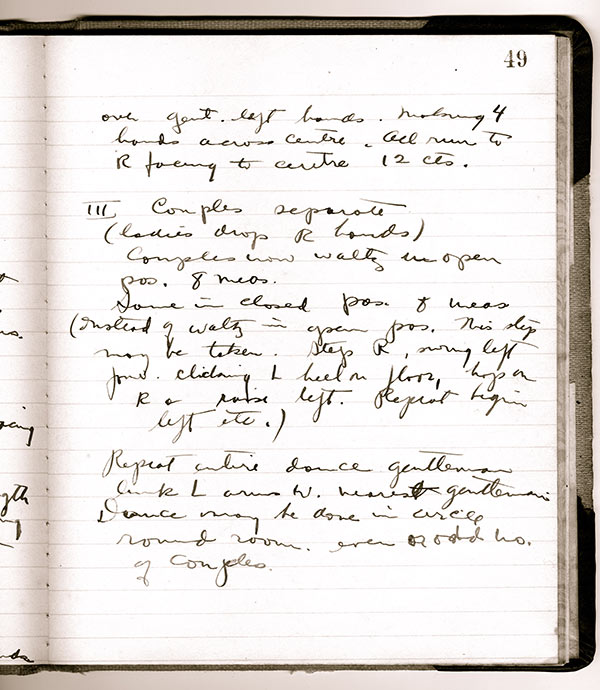 49
over gent. left hands. making 4
hands across centre. All run to
R facing to centre 12 cts.
III Couples separate
(ladies drop R hands)
Couples now waltz in open
pos. 8 meas.
Same in closed pos. 8 meas
(Instead of waltz in open pos. this step
may be taken. Step R, swing left
forw. clicking L heel on floor, hop on
R & raise left. Repeat begin
left etc.)
Repeat entire dance gentleman
link L arms w. nearest gentleman
Dance may be done in circle
round room. even or odd no.
of couples.